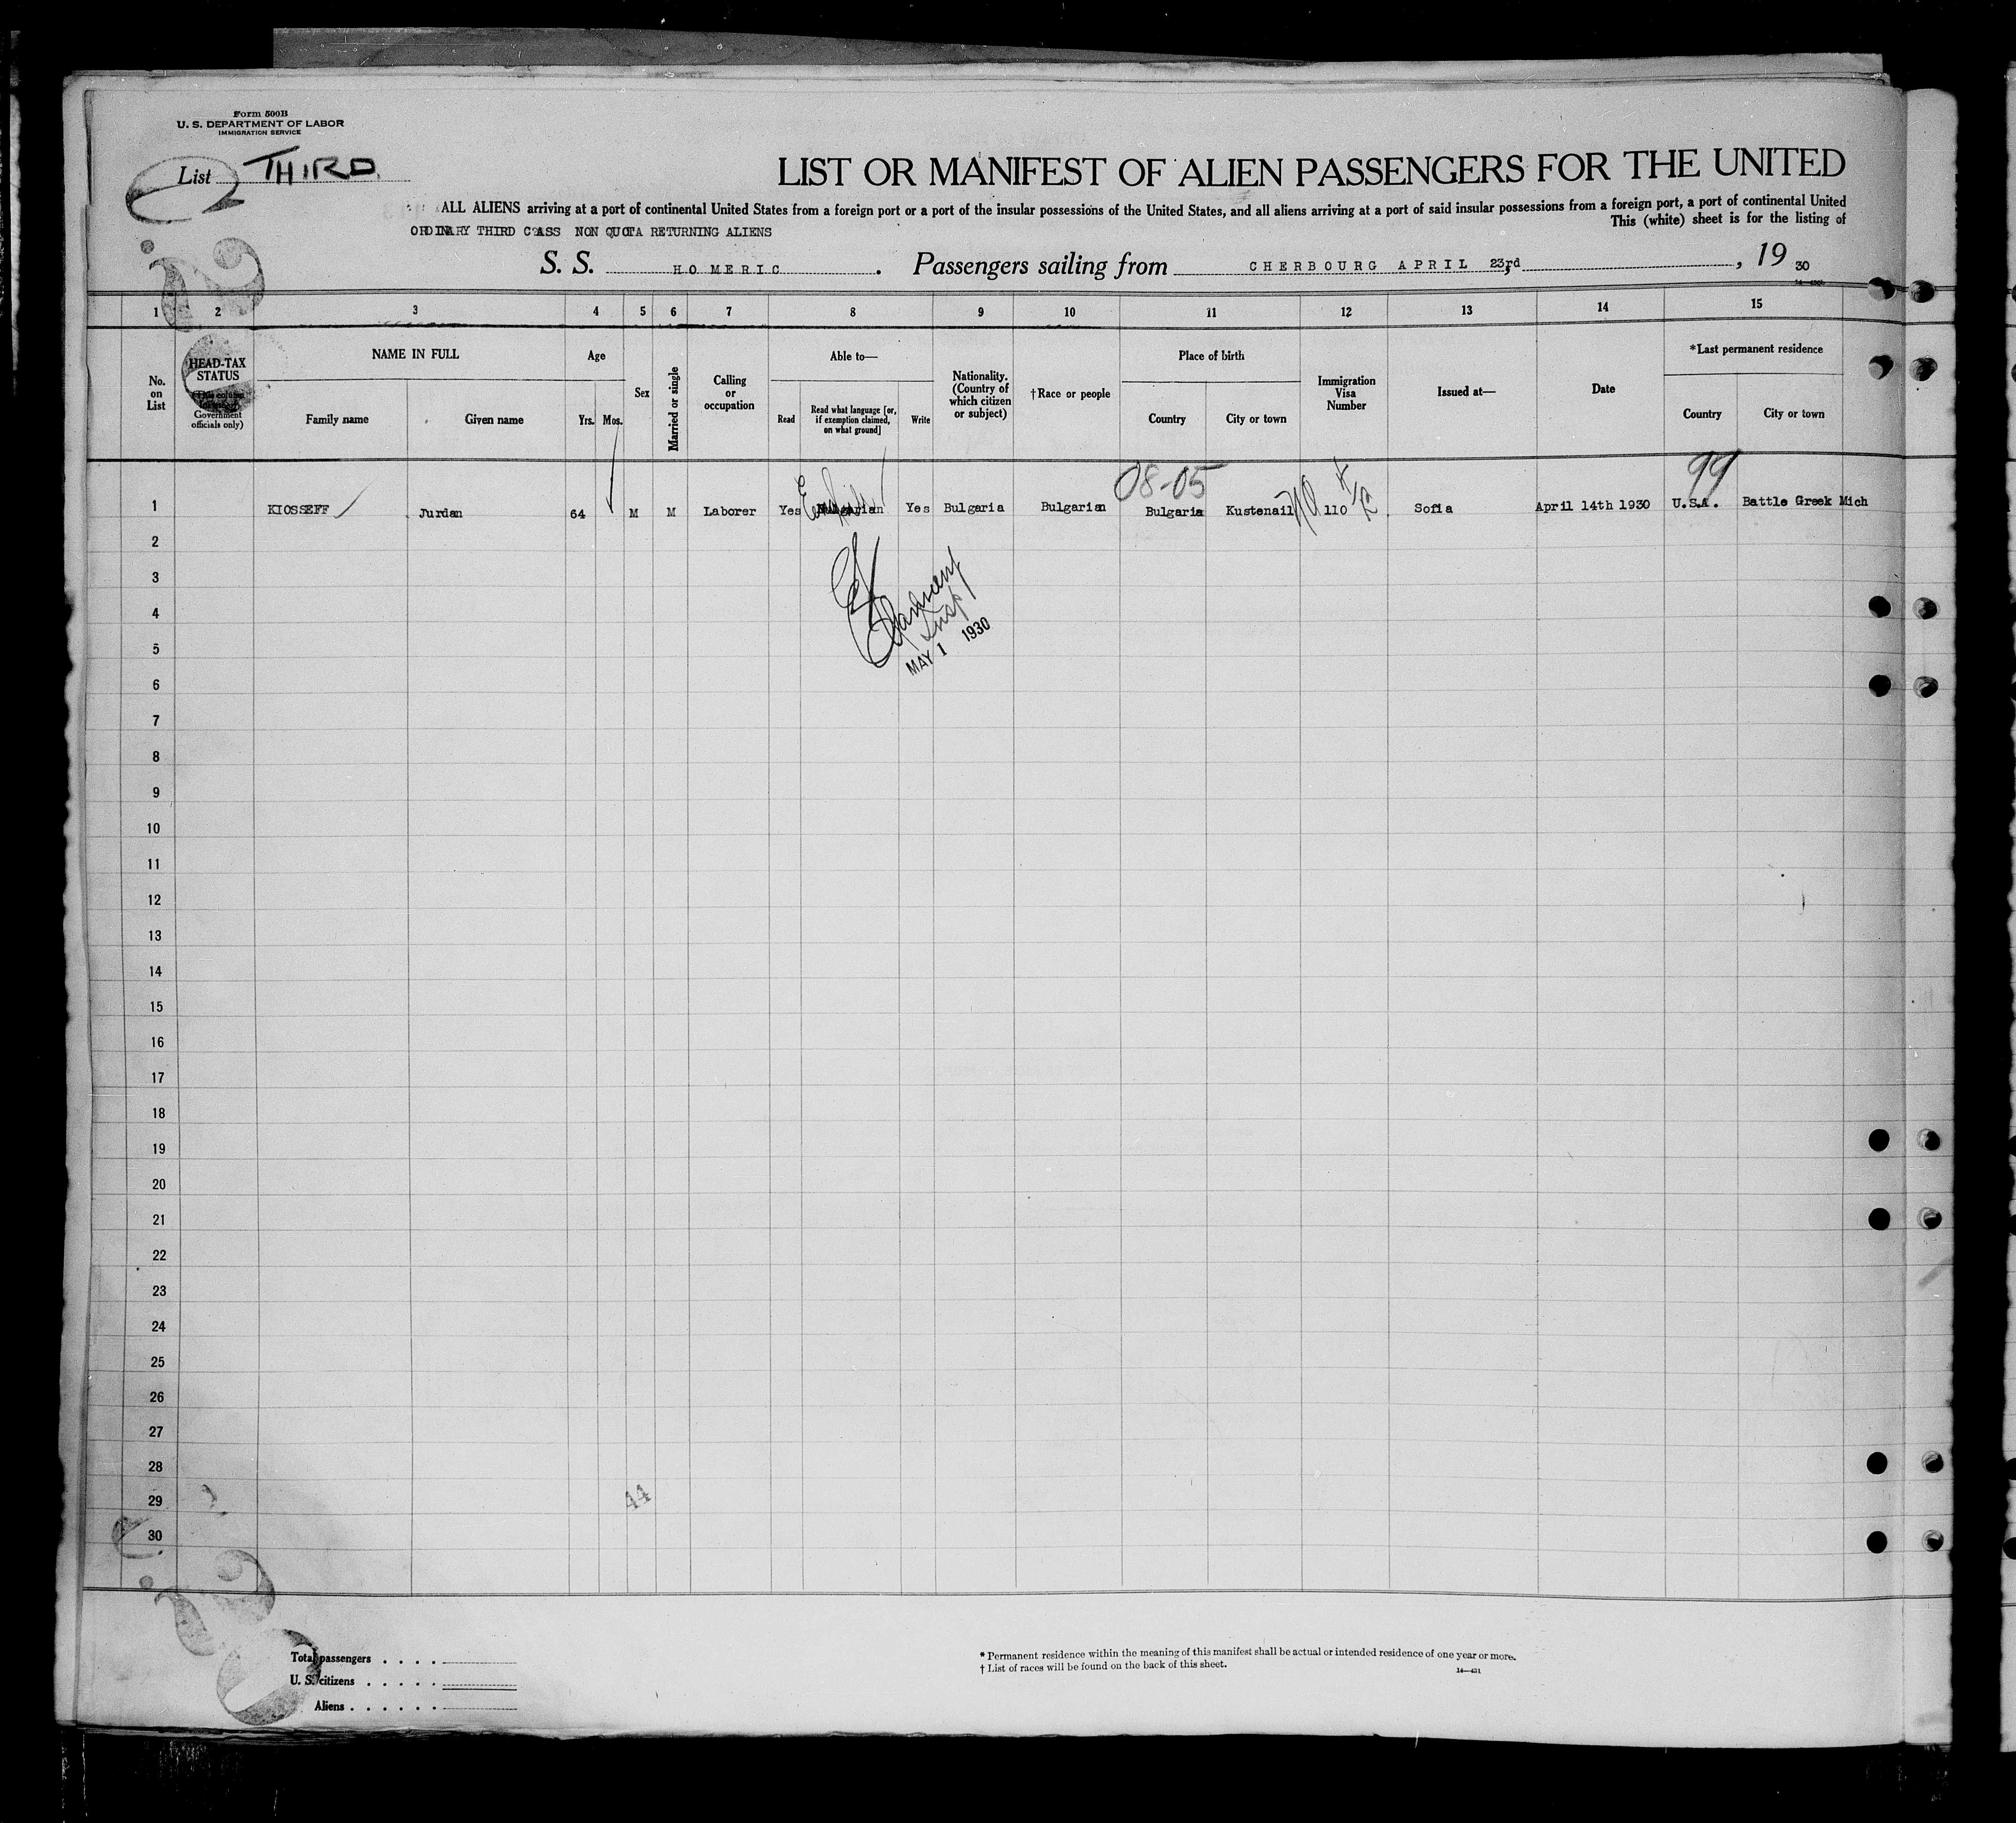 Form 500B
U. S. DEPARTMENT OF LABOR
IMMIGRATION SERVICE
List THIRD
LIST OR MANIFEST OF ALIEN PASSENGERS FOR THE UNITED
ALL ALIENS arriving at a port of continental United States from a foreign port or a port of the insular possessions of the United States, and all aliens arriving at a port of said insular possessions from a foreign port, a port of continental United
This (white) sheet is for the listing of
ORDINARY THIRD CLASS NON QUOTA RETURNING ALIENS
S. S. HOMERIC. Passengers sailing from CHERBOURG APRIL 23rd, 19 30
1 2 3 4 5 6 7 8 9 10 11 12 13 14 15
No. on List
HEAD-TAX STATUS
(This column for use of Government officials only)
NAME IN FULL
Family name
Given name
Age
Yrs. Mos.
Sex
Married or single
Calling or occupation
Able to—
Read
Read what language [or, if exemption claimed, on what ground]
Write
Nationality. (Country of which citizen or subject)
†Race or people
Place of birth
Country
City or town
Immigration Visa Number
Issued at—
Date
*Last permanent residence
Country
City or town
08-05
99
1 KIOSSEFF Jurdan 64 M M Laborer Yes Bulgarian Yes Bulgaria Bulgarian Bulgaria Kustenail 110 Sofia April 14th 1930 U.S.A. Battle Greek Mich
2
3
4
Insp
5
MAY 1 1930
6
7
8
9
10
11
12
13
14
15
16
17
18
19
20
21
22
23
24
25
26
27
28
29
44
30
Total passengers . . . .
U. S. citizens . . . . .
Aliens . . . . . .
* Permanent residence within the meaning of this manifest shall be actual or intended residence of one year or more.
† List of races will be found on the back of this sheet.
14—431